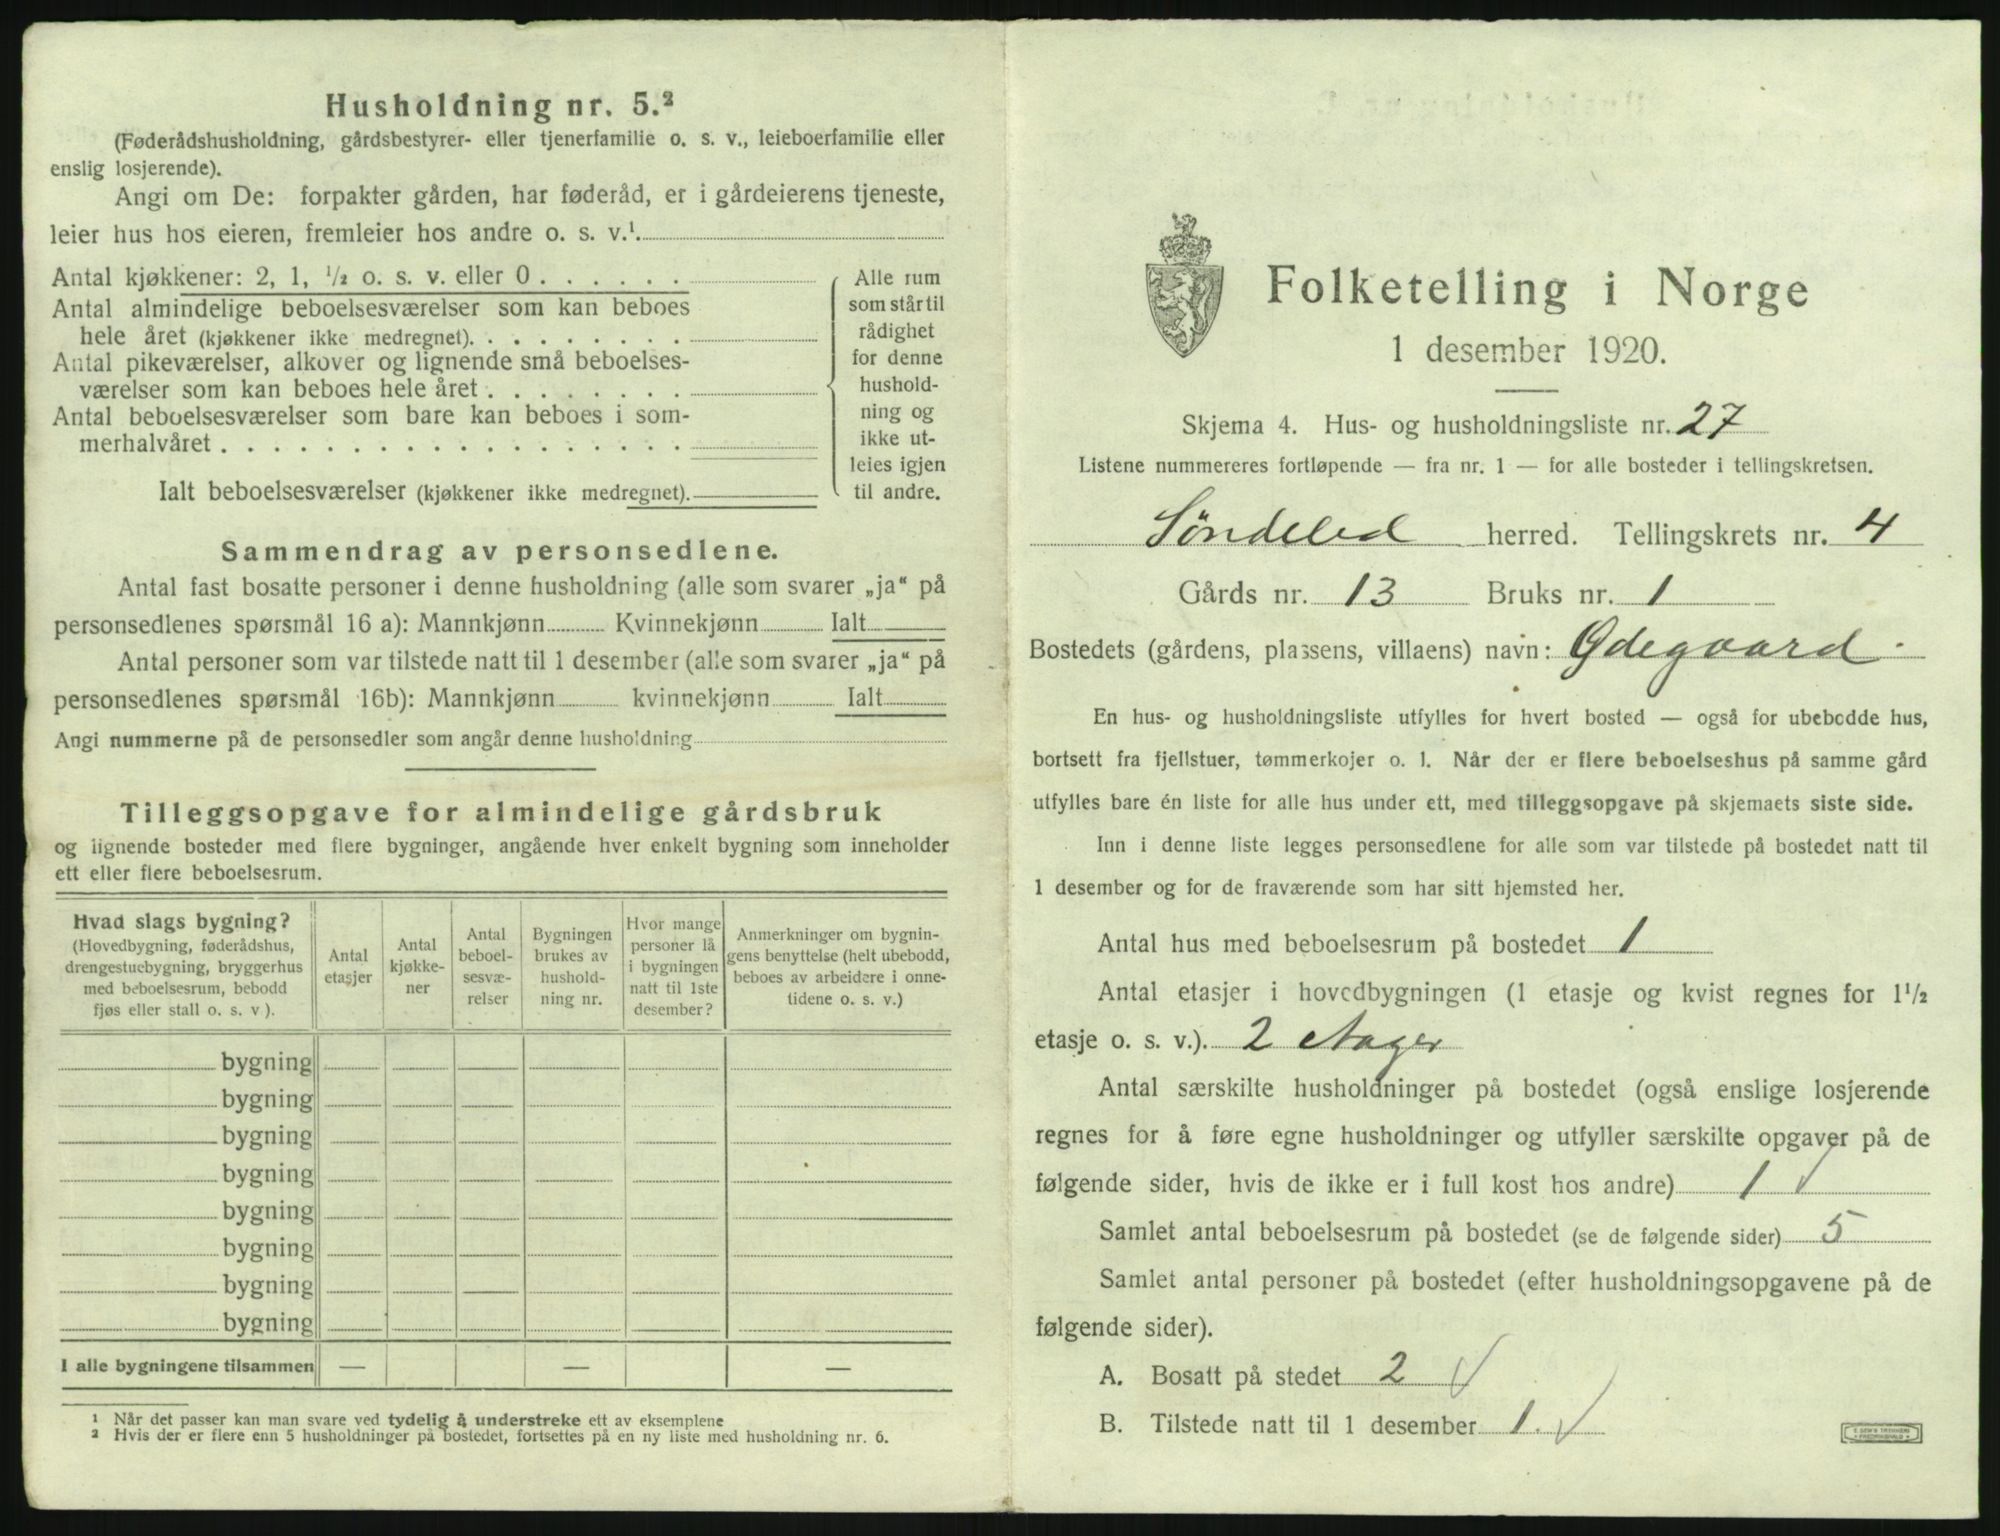 Husholdning nr. 5.²
(Føderådshusholdning, gårdsbestyrer- eller tjenerfamilie o. s. v., leieboerfamilie eller
enslig losjerende).
Angi om De: forpakter gården, har føderåd, er i gårdeierens tjeneste,
leier hus hos eieren, fremleier hos andre o. s. v.¹
Antal kjøkkener: 2, 1, ½ o. s. v. eller 0 . . . . . .
Antal almindelige beboelsesværelser som kan beboes
hele året (kjøkkener ikke medregnet). . . . . . . . .
Antal pikeværelser, alkover og lignende små beboelses-
værelser som kan beboes hele året . . . . . . . .
Antal beboelsesværelser som bare kan beboes i som-
merhalvåret . . . . . . . . . . . . . . . . . .
Ialt beboelsesværelser (kjøkkener ikke medregnet).
Alle rum
som står til
rådighet
for denne
hushold-
ning og
ikke ut-
leies igjen
til andre.
Sammendrag av personsedlene.
Antal fast bosatte personer i denne husholdning (alle som svarer „ja“ på
personsedlenes spørsmål 16 a): Mannkjønn Kvinnekjønn Ialt
Antal personer som var tilstede natt til 1 desember (alle som svarer „ja“ på
personsedlenes spørsmål 16b): Mannkjønn kvinnekjønn Ialt
Angi nummerne på de personsedler som angår denne husholdning
Tilleggsopgave for almindelige gårdsbruk
og lignende bosteder med flere bygninger, angående hver enkelt bygning som inneholder
ett eller flere beboelsesrum.
Hvad slags bygning?
(Hovedbygning, føderådshus,
drengestuebygning, bryggerhus
med beboelsesrum, bebodd
fjøs eller stall o. s. v ).
Antal
etasjer
Antal
kjøkke-
ner
Antal
beboel-
sesvæ-
relser
Bygningen
brukes av
hushold-
ning nr.
Hvor mange
personer lå
i bygningen
natt til 1ste
desember?
Anmerkninger om bygnin-
gens benyttelse (helt ubebodd,
beboes av arbeidere i onne-
tidene o. s. v.)
bygning
bygning
bygning
bygning
bygning
bygning
bygning
bygning
I alle bygningene tilsammen — — —
¹ Når det passer kan man svare ved tydelig å understreke ett av eksemplene
² Hvis der er flere enn 5 husholdninger på bostedet, fortsettes på en ny liste med husholdning nr. 6.
Folketelling i Norge
1 desember 1920.
Skjema 4. Hus- og husholdningsliste nr. 27
Listene nummereres fortløpende — fra nr. 1 — for alle bosteder i tellingskretsen.
Søndeled herred. Tellingskrets nr. 4
Gårds nr. 13 Bruks nr. 1
Bostedets (gårdens, plassens, villaens) navn: Ødegaard.
En hus- og husholdningsliste utfylles for hvert bosted — også for ubebodde hus,
bortsett fra fjellstuer, tømmerkojer o. l. Når der er flere beboelseshus på samme gård
utfylles bare én liste for alle hus under ett, med tilleggsopgave på skjemaets siste side.
Inn i denne liste legges personsedlene for alle som var tilstede på bostedet natt til
1 desember og for de fraværende som har sitt hjemsted her.
Antal hus med beboelsesrum på bostedet 1
Antal etasjer i hovedbygningen (1 etasje og kvist regnes for 1½
etasje o. s. v.). 2 etager
Antal særskilte husholdninger på bostedet (også enslige losjerende
regnes for å føre egne husholdninger og utfyller særskilte opgaver på de
følgende sider, hvis de ikke er i full kost hos andre) 1 √
Samlet antal beboelsesrum på bostedet (se de følgende sider) 5
Samlet antal personer på bostedet (efter husholdningsopgavene på de
følgende sider).
A. Bosatt på stedet 2 √
B. Tilstede natt til 1 desember 1. √